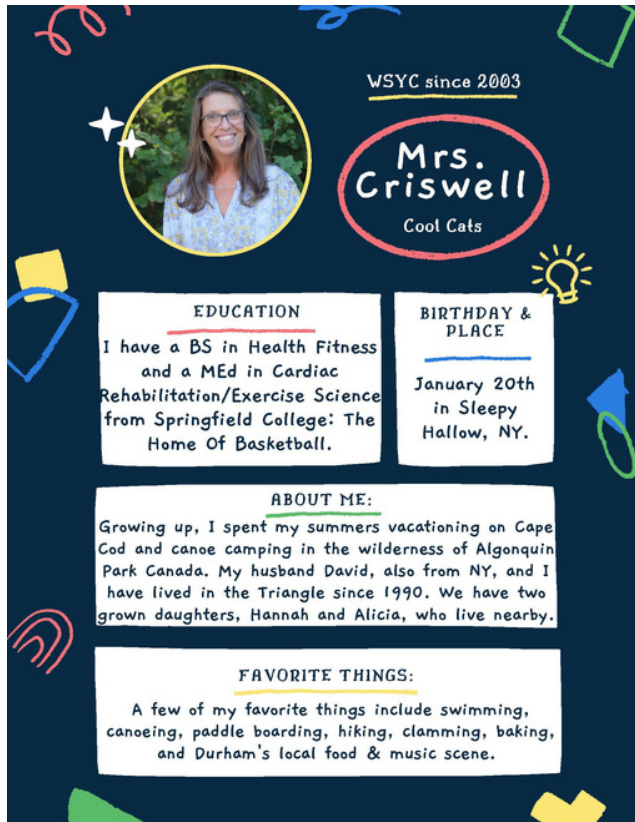 WSYC since 2003
Mrs.
Criswell
Cool Cats
EDUCATION
I have a BS in Health Fitness
and a MEd in Cardiac
Rehabilitation/Exercise Science
from Springfield College: The
Home Of Basketball.
BIRTHDAY &
PLACE
January 20th
in Sleepy
Hallow, NY.
ABOUT ME:
Growing up, I spent my summers vacationing on Cape
Cod and canoe camping in the wilderness of Algonquin
Park Canada. My husband David, also from NY, and I
have lived in the Triangle since 1990. We have two
grown daughters, Hannah and Alicia, who live nearby.
FAVORITE THINGS:
A few of my favorite things include swimming,
canoeing, paddle boarding, hiking, clamming, baking,
and Durham's local food & music scene.